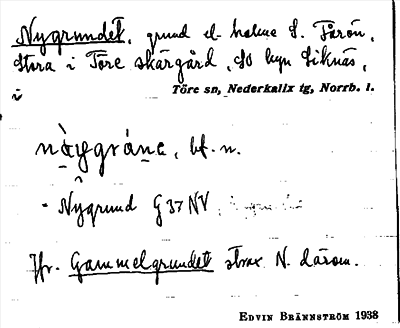 Nygrundet, grund el. holme S. Tårön,
Stora i Töre skärgård, SO byn Siknäs,
i
Töre sn, Nederkalix tg, Norrb. l.
bf. n.
- Nygrund G 37 NV,
Jfr. Gammelgrundet strax N. därom.
EDVIN BRÄNNSTRÖM 1938